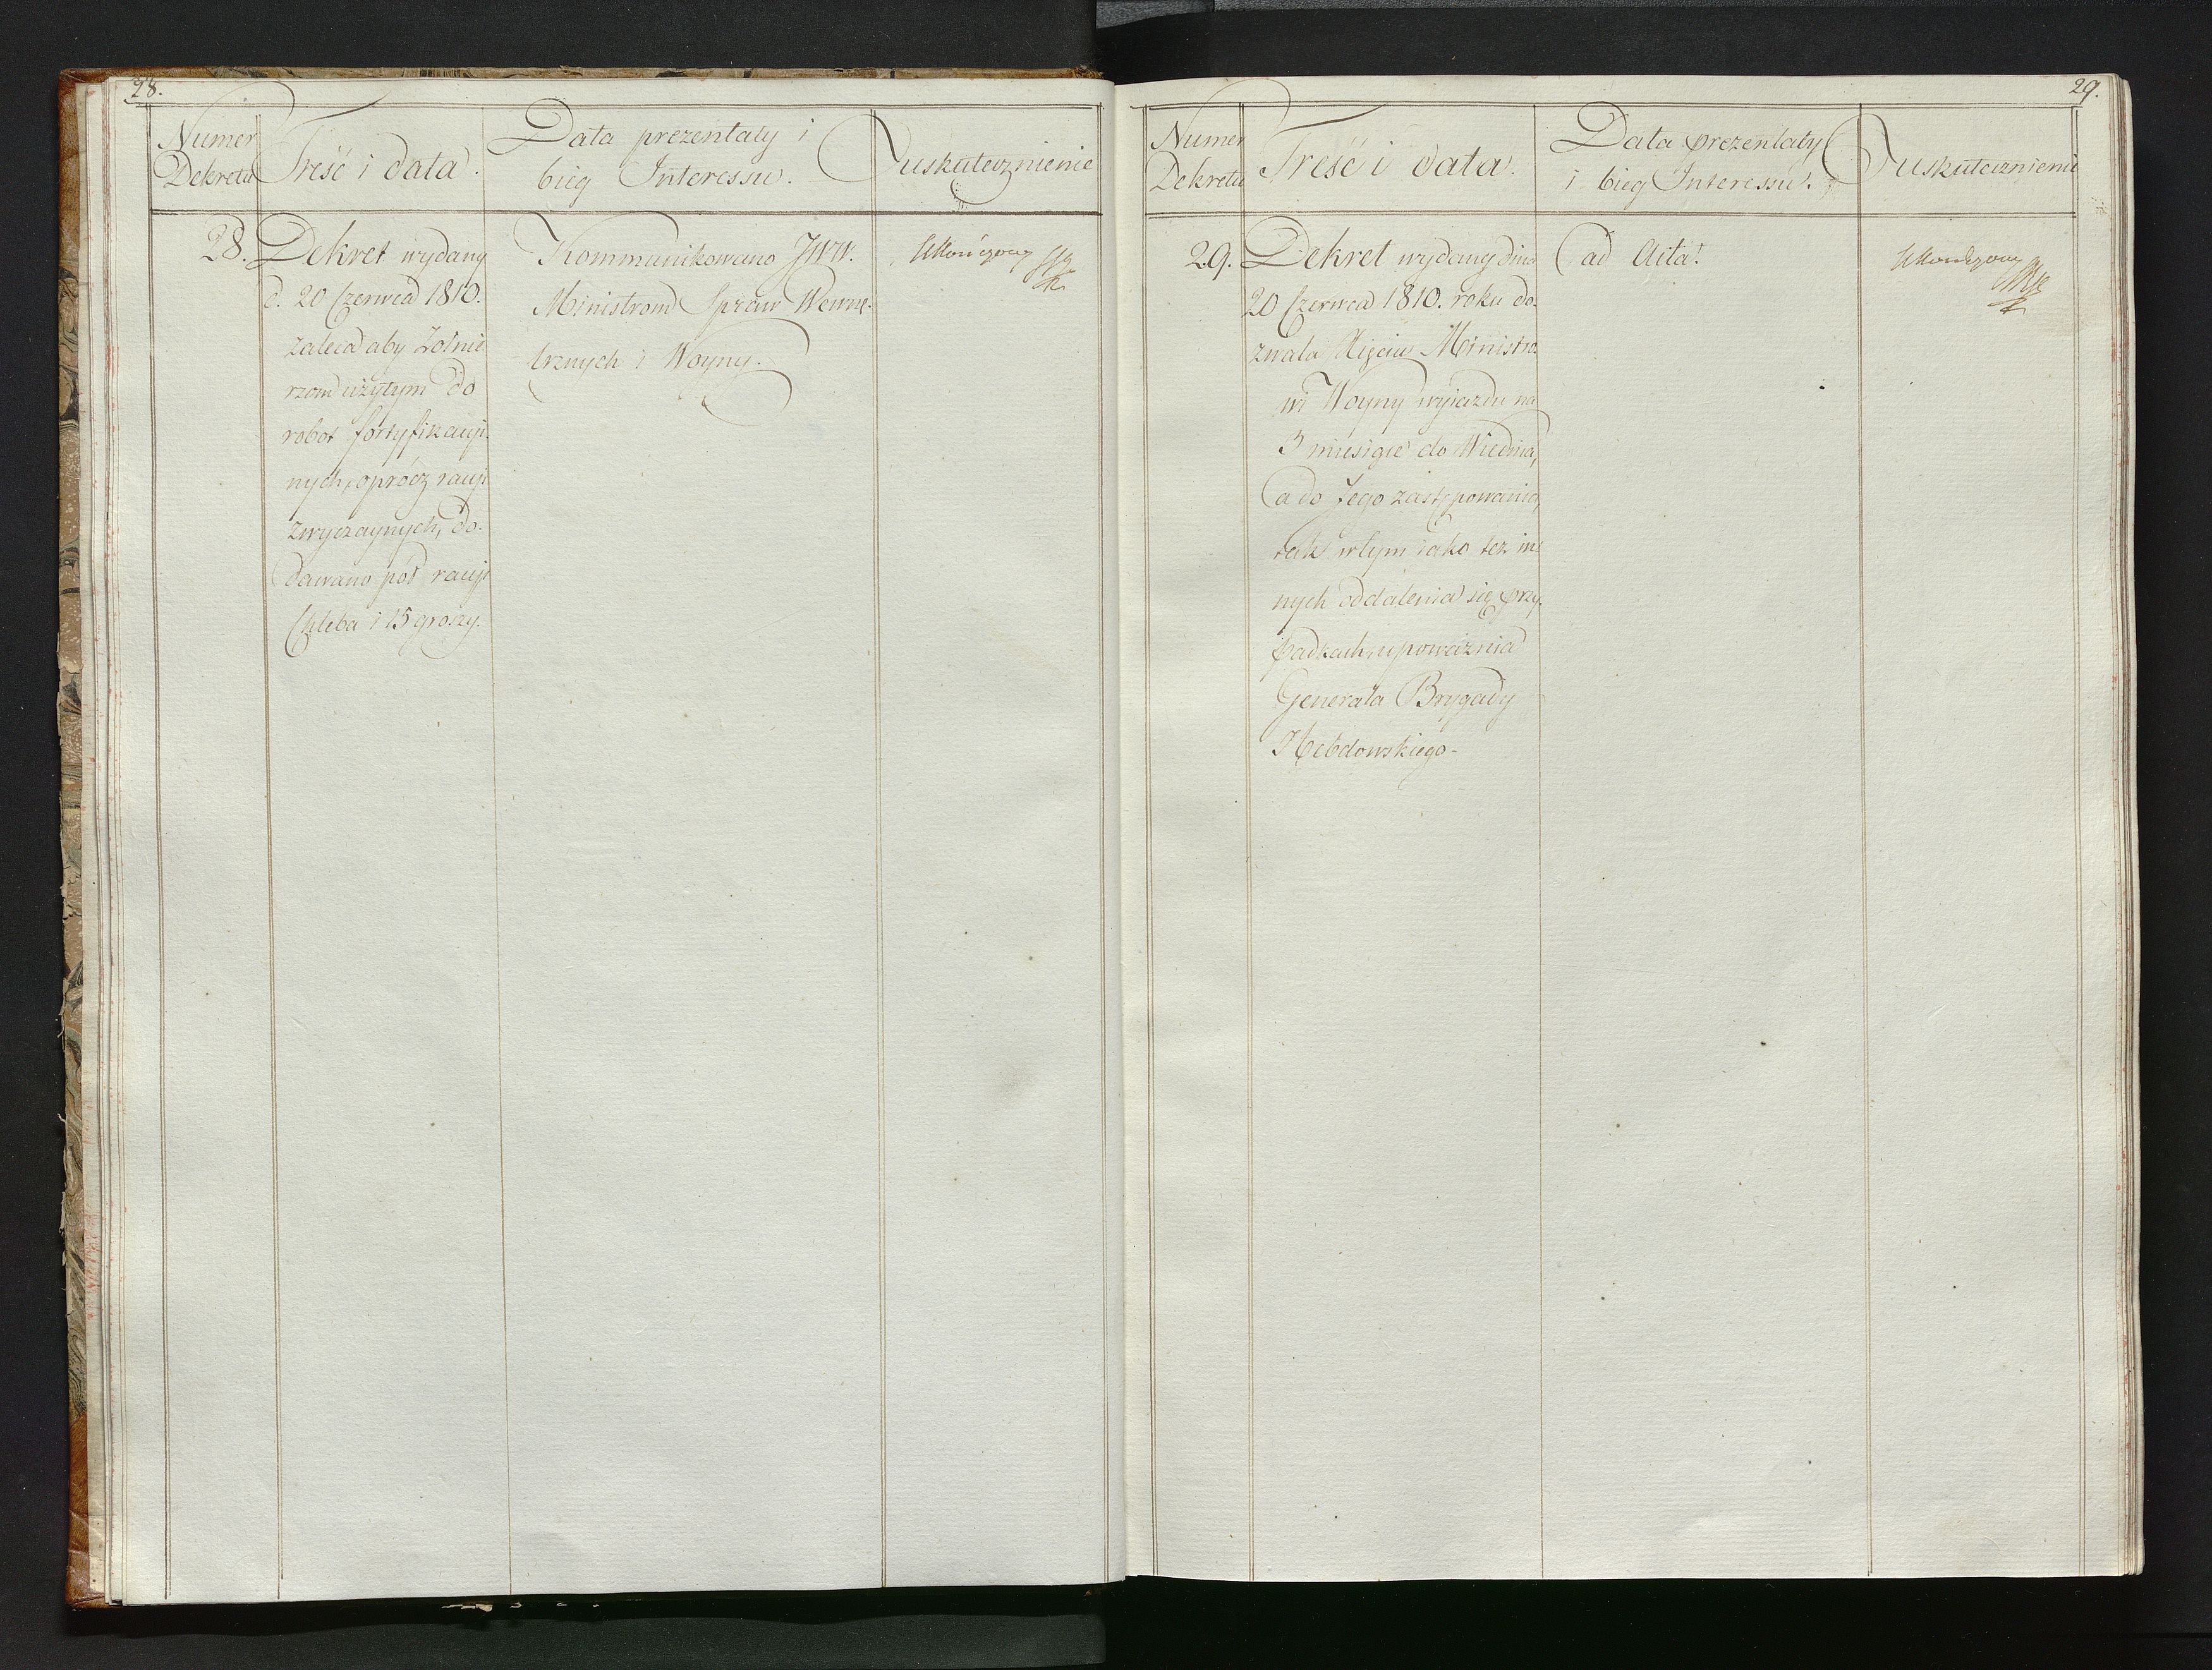 28.
Numer
Dekretu
Treść i data.
Data prezentaty i
bieg Interessu.
uskutecznienie
28.
Dekret wydany
d. 20 Czerwca 1810.
zaleca aby Żołnie
rzom użytym do
robot fortyfikacyi
nych, oprócz racyi
zwyczaynych, do-
dawano pół racyi
Chleba i 15 groszy.
Kommunikowano JWW.
Ministrom Spraw Wewnę-
trznych i Woyny.
Ukończony
29.
Numer
Dekretu
Treść i data.
Data prezentaty
i bieg Interessu.
uskutecznienie
29.
Dekret wydany dnia
20 Czerwca 1810. roku do-
zwala Xięciu Ministro
wi Woyny wyiazdu na
3 miesiące do Wiednia,
a do Jego zastępowania,
tak w tym iako też in-
nych oddalenia się przy-
padkach upoważnia
Generała Brygady
Hebdowskiego-
ad Acta.
Ukończony